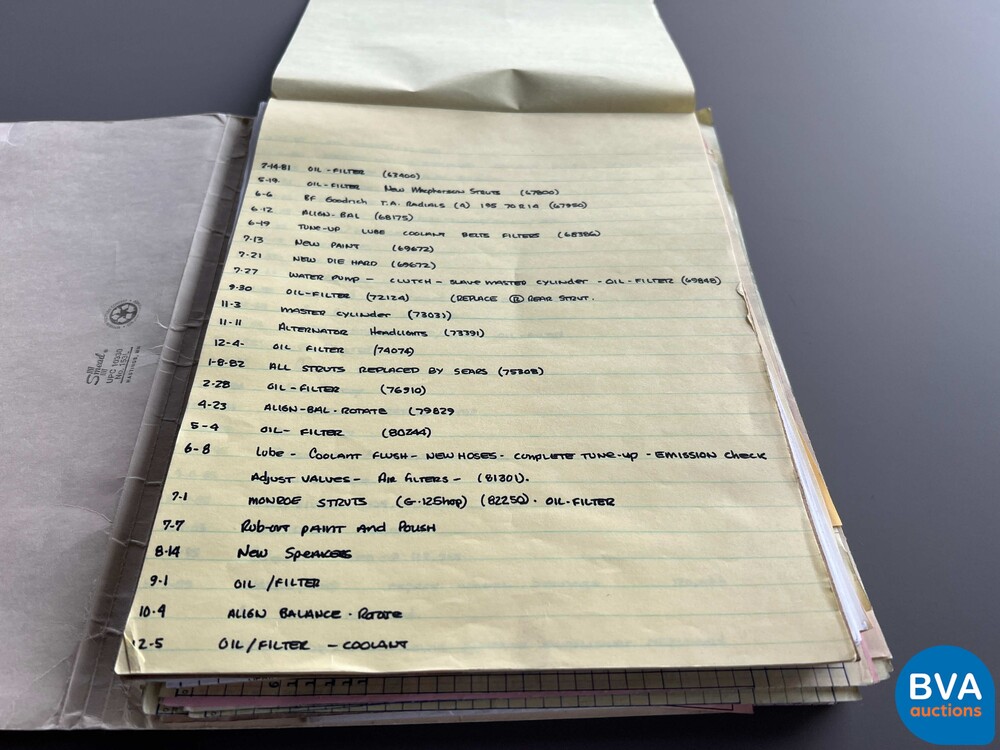 7-14-81 OIL-FILTER (67400)
5-19 OIL-FILTER New Macpherson Struts (67800)
6-6 BF Goodrich T.A. Radials (4) 195 70R14 (67950)
6-12 ALIGN-BAL (68175)
6-19 TUNE-UP LUBE COOLANT BELTS FILTERS (68386)
7-13 NEW PAINT (69672)
7-21 NEW DIE HARD (69672)
7-27 WATER PUMP - CLUTCH - SLAVE MASTER CYLINDER - OIL-FILTER (69848)
9-30 OIL-FILTER (72124) (REPLACE Ⓡ REAR STRUT.
11-3 MASTER CYLINDER (73031)
11-11 ALTERNATOR HEADLIGHTS (73391)
12-4- OIL FILTER (74074)
1-8-82 ALL STRUTS REPLACED BY SEARS (75308)
2-28 OIL-FILTER (76910)
4-23 ALIGN-BAL-ROTATE (79829
5-4 OIL-FILTER (80244)
6-8 Lube - COOLANT FLUSH - NEW HOSES - COMPLETE TUNE-UP - EMISSION CHECK
ADJUST VALVES - AIR FILTERS - (81301).
7-1 MONROE STRUTS (G-125hop) (82250) - OIL-FILTER
7-7 Rub-out PAINT AND POLISH
8-14 NEW SPEAKERS
9-1 OIL /FILTER
10-4 ALIGN BALANCE - ROTATE
12-5 OIL/FILTER - COOLANT
Smead®
UPC 10330
No. 153L
HASTINGS, MN
BVA
auctions